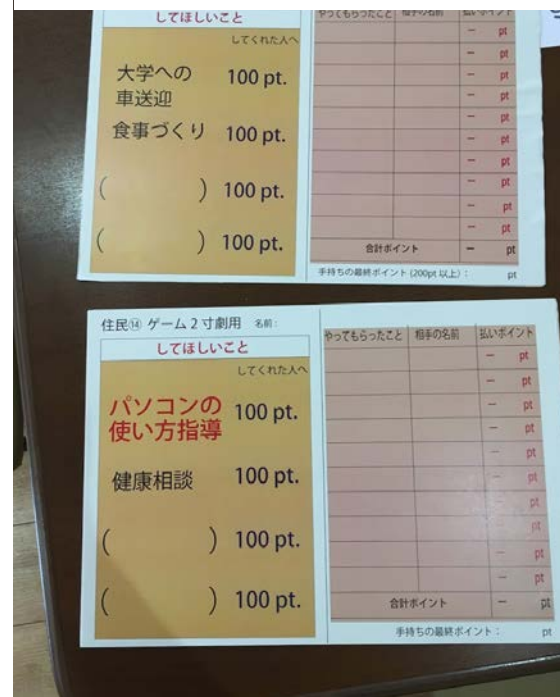 してほしいこと
やってもらったこと 相手の名前 払いポイント
してくれた人へ
大学への
車送迎 100 pt.
食事づくり 100 pt.
( ) 100 pt.
( ) 100 pt.
− pt
− pt
− pt
− pt
− pt
− pt
− pt
− pt
− pt
− pt
− pt
合計ポイント − pt
手持ちの最終ポイント (200pt 以上) : pt
住民⑭ ゲーム2寸劇用 名前:
してほしいこと
してくれた人へ
パソコンの
使い方指導 100 pt.
健康相談 100 pt.
( ) 100 pt.
( ) 100 pt.
やってもらったこと 相手の名前 払いポイント
− pt
− pt
− pt
− pt
− pt
− pt
− pt
− pt
− pt
− pt
合計ポイント − pt
手持ちの最終ポイント: pt